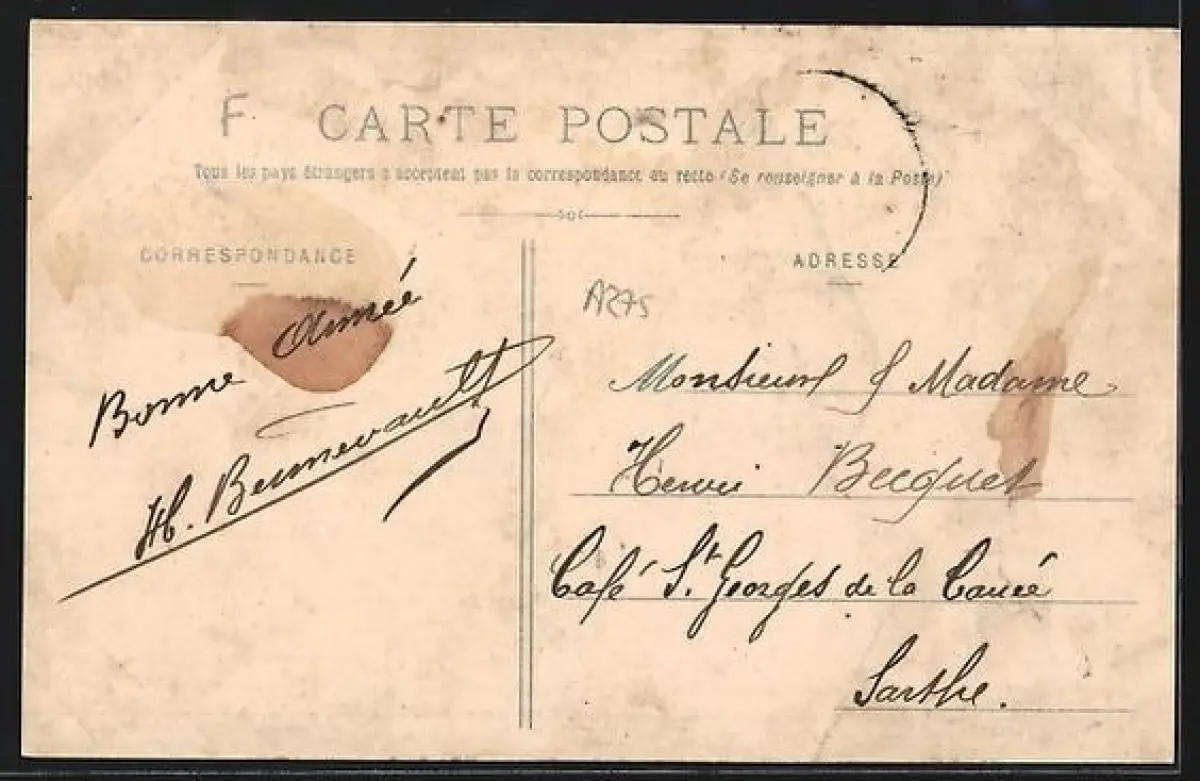 F CARTE POSTALE
Tous les pays étrangers n'acceptent pas la correspondance au recto (Se renseigner à la Poste)
CORRESPONDANCE
Bonne Année
H.
ADRESSE
A275
Monsieur & Madame
Henri Becquet
Café St Georges de la Couée
Sarthe.